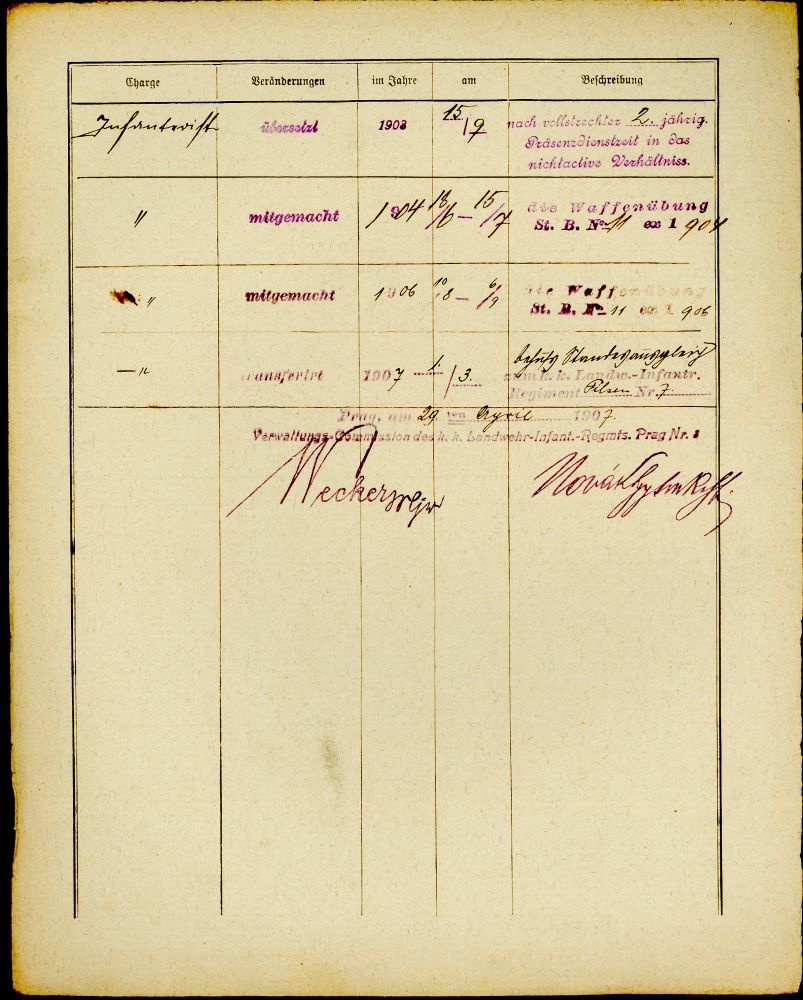 Charge Veränderungen im Jahre am Beschreibung
Infanterist übersetzt 1903 15/9 nach vollstreckter 2. jährig.
Präsenzdienstzeit in das
nichtactive Verhältniss.
" mitgemacht 1904 18/6 – 15/7 die Waffenübung
St. B. No 11 ex 1904
" mitgemacht 1906 10/8 – 6/9 die Waffenübung
St. B. No 11 ex 1906
— " transferirt 1907 1./3. behufs Standesausgleich
zum k. k. Landw.-Infantr.
Regiment Pilsen Nr. 7
Prag, am 29 ten April 1907.
Verwaltungs-Commission des k. k. Landwehr-Infant.-Regmts. Prag Nr. 8
Novák